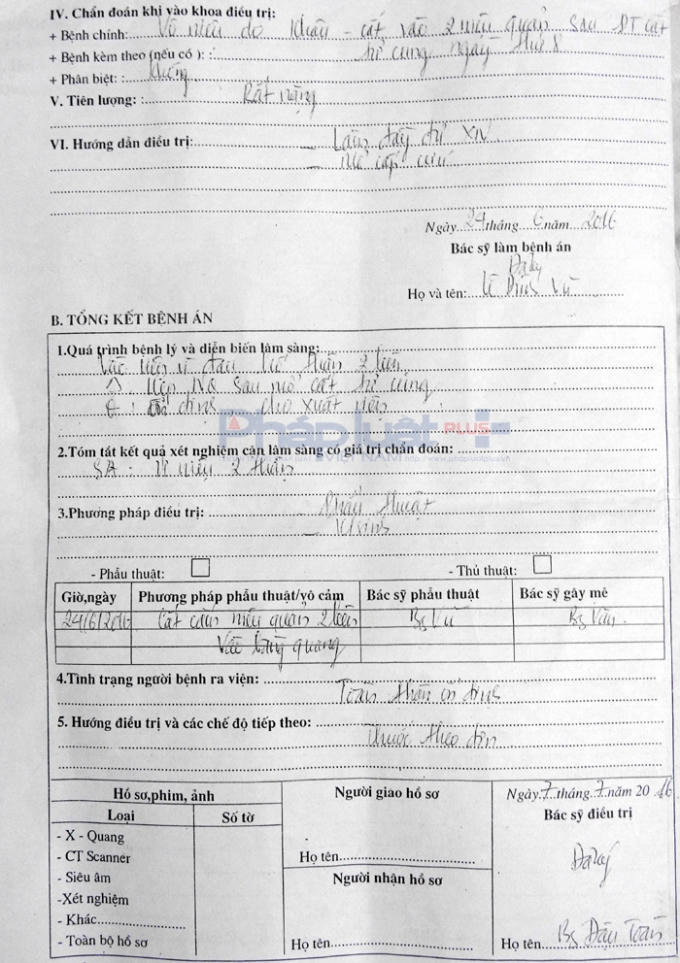 IV. Chẩn đoán khi vào khoa điều trị:
+ Bệnh chính: Vô niệu do khâu - cắt vào 2 niệu quản sau PT cắt
+ Bệnh kèm theo (nếu có ): tử cung ngày thứ 8
+ Phân biệt: : không
V. Tiên lượng: : Rất nặng
VI. Hướng dẫn điều trị: - Làm đầy đủ XN
- Mổ cấp cứu
Ngày 24 tháng 6 năm 2016
Bác sỹ làm bệnh án
Đã ký
Họ và tên:
B. TỔNG KẾT BỆNH ÁN
1.Quá trình bệnh lý và diễn biến lâm sàng:
Vào viện vì đau hố thận 2 bên
sau mổ cắt tử cung
cho xuất viện
PhápLuật PLUS
VIỆT NAM
2.Tóm tắt kết quả xét nghiệm cận lâm sàng có giá trị chẩn đoán:
SA: 2 thận
3.Phương pháp điều trị: - Phẫu thuật
- K/sinh
- Phẫu thuật:
- Thủ thuật:
Giờ,ngày Phương pháp phẫu thuật/vô cảm Bác sỹ phẫu thuật Bác sỹ gây mê
24/6/2016 Cắm niệu quản 2 bên Bs Vũ Bs Vân
vào bàng quang
4.Tình trạng người bệnh ra viện:
Toàn thân ổn định
5. Hướng điều trị và các chế độ tiếp theo:
Thuốc theo đơn
Hồ sơ,phim, ảnh
Loại Số tờ
- X - Quang
- CT Scanner
- Siêu âm
-Xét nghiệm
- Khác
- Toàn bộ hồ sơ
Người giao hồ sơ
Họ tên
Người nhận hồ sơ
Họ tên
Ngày 7 tháng 7 năm 2016
Bác sỹ điều trị
Đã ký
Họ tên Bs Đậu Toàn